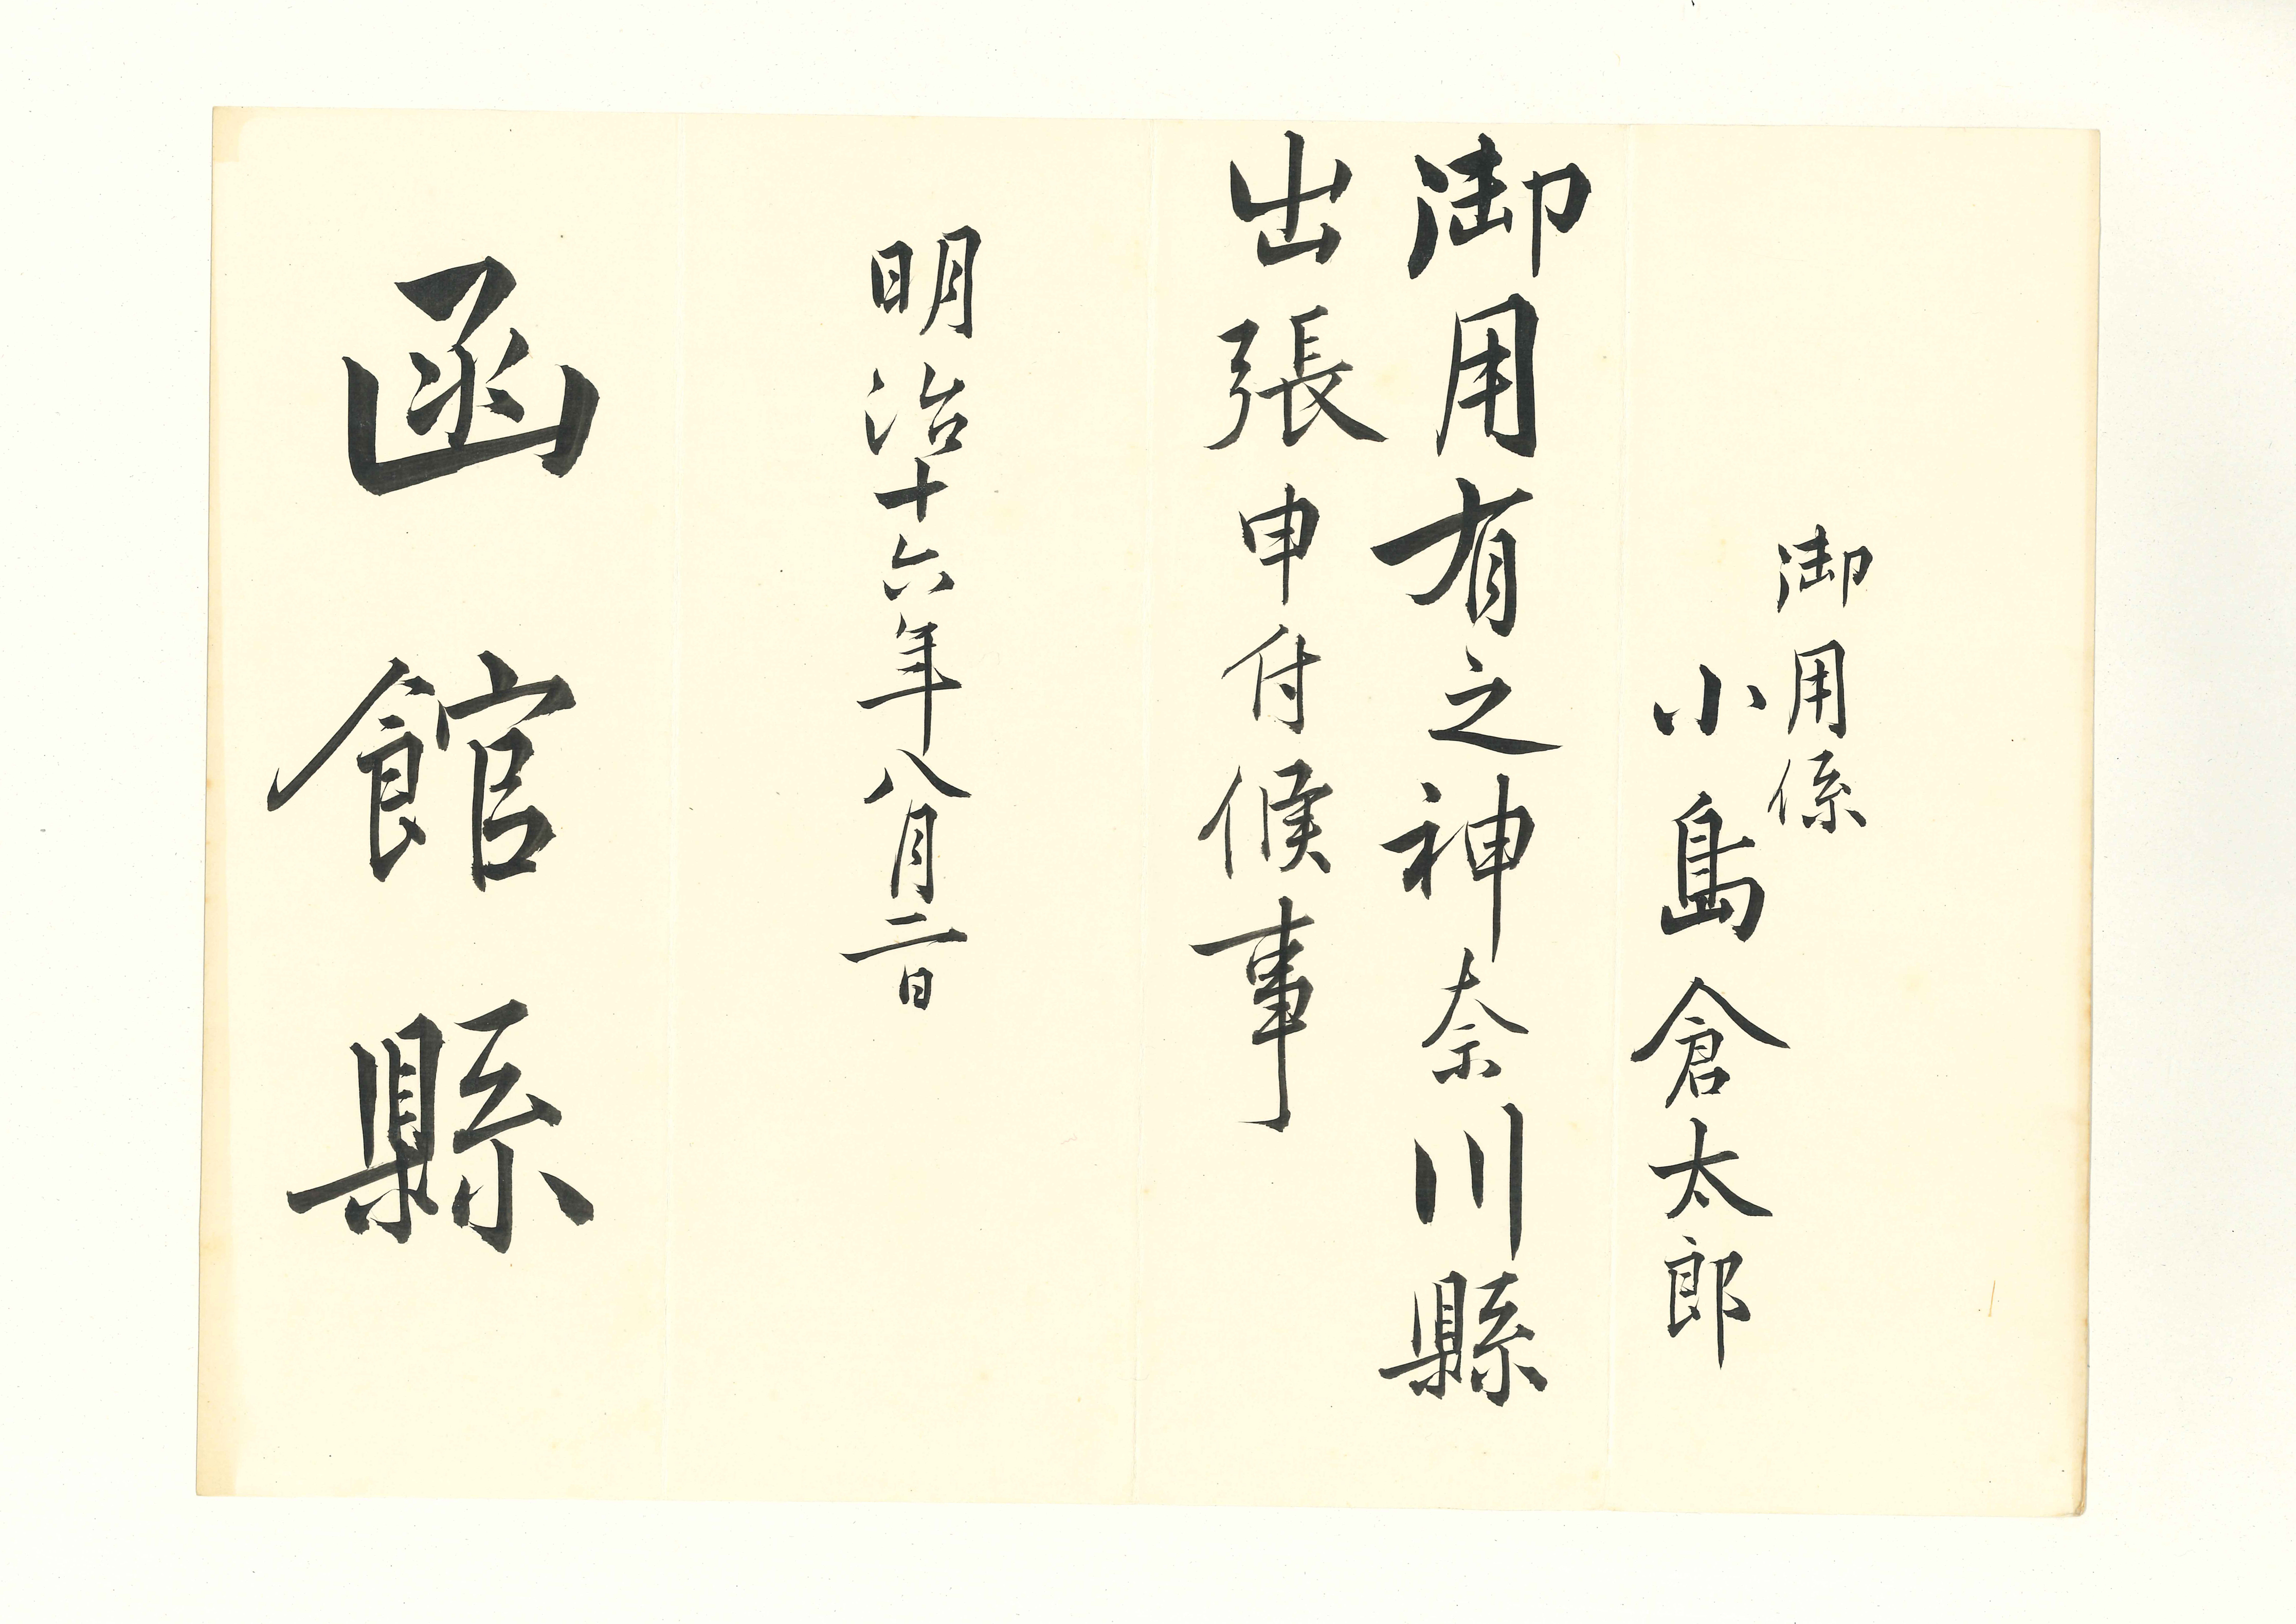 御用係
小島倉太郎
御用有之神奈川縣
出張申付候事
明治十六年八月二日
函館縣